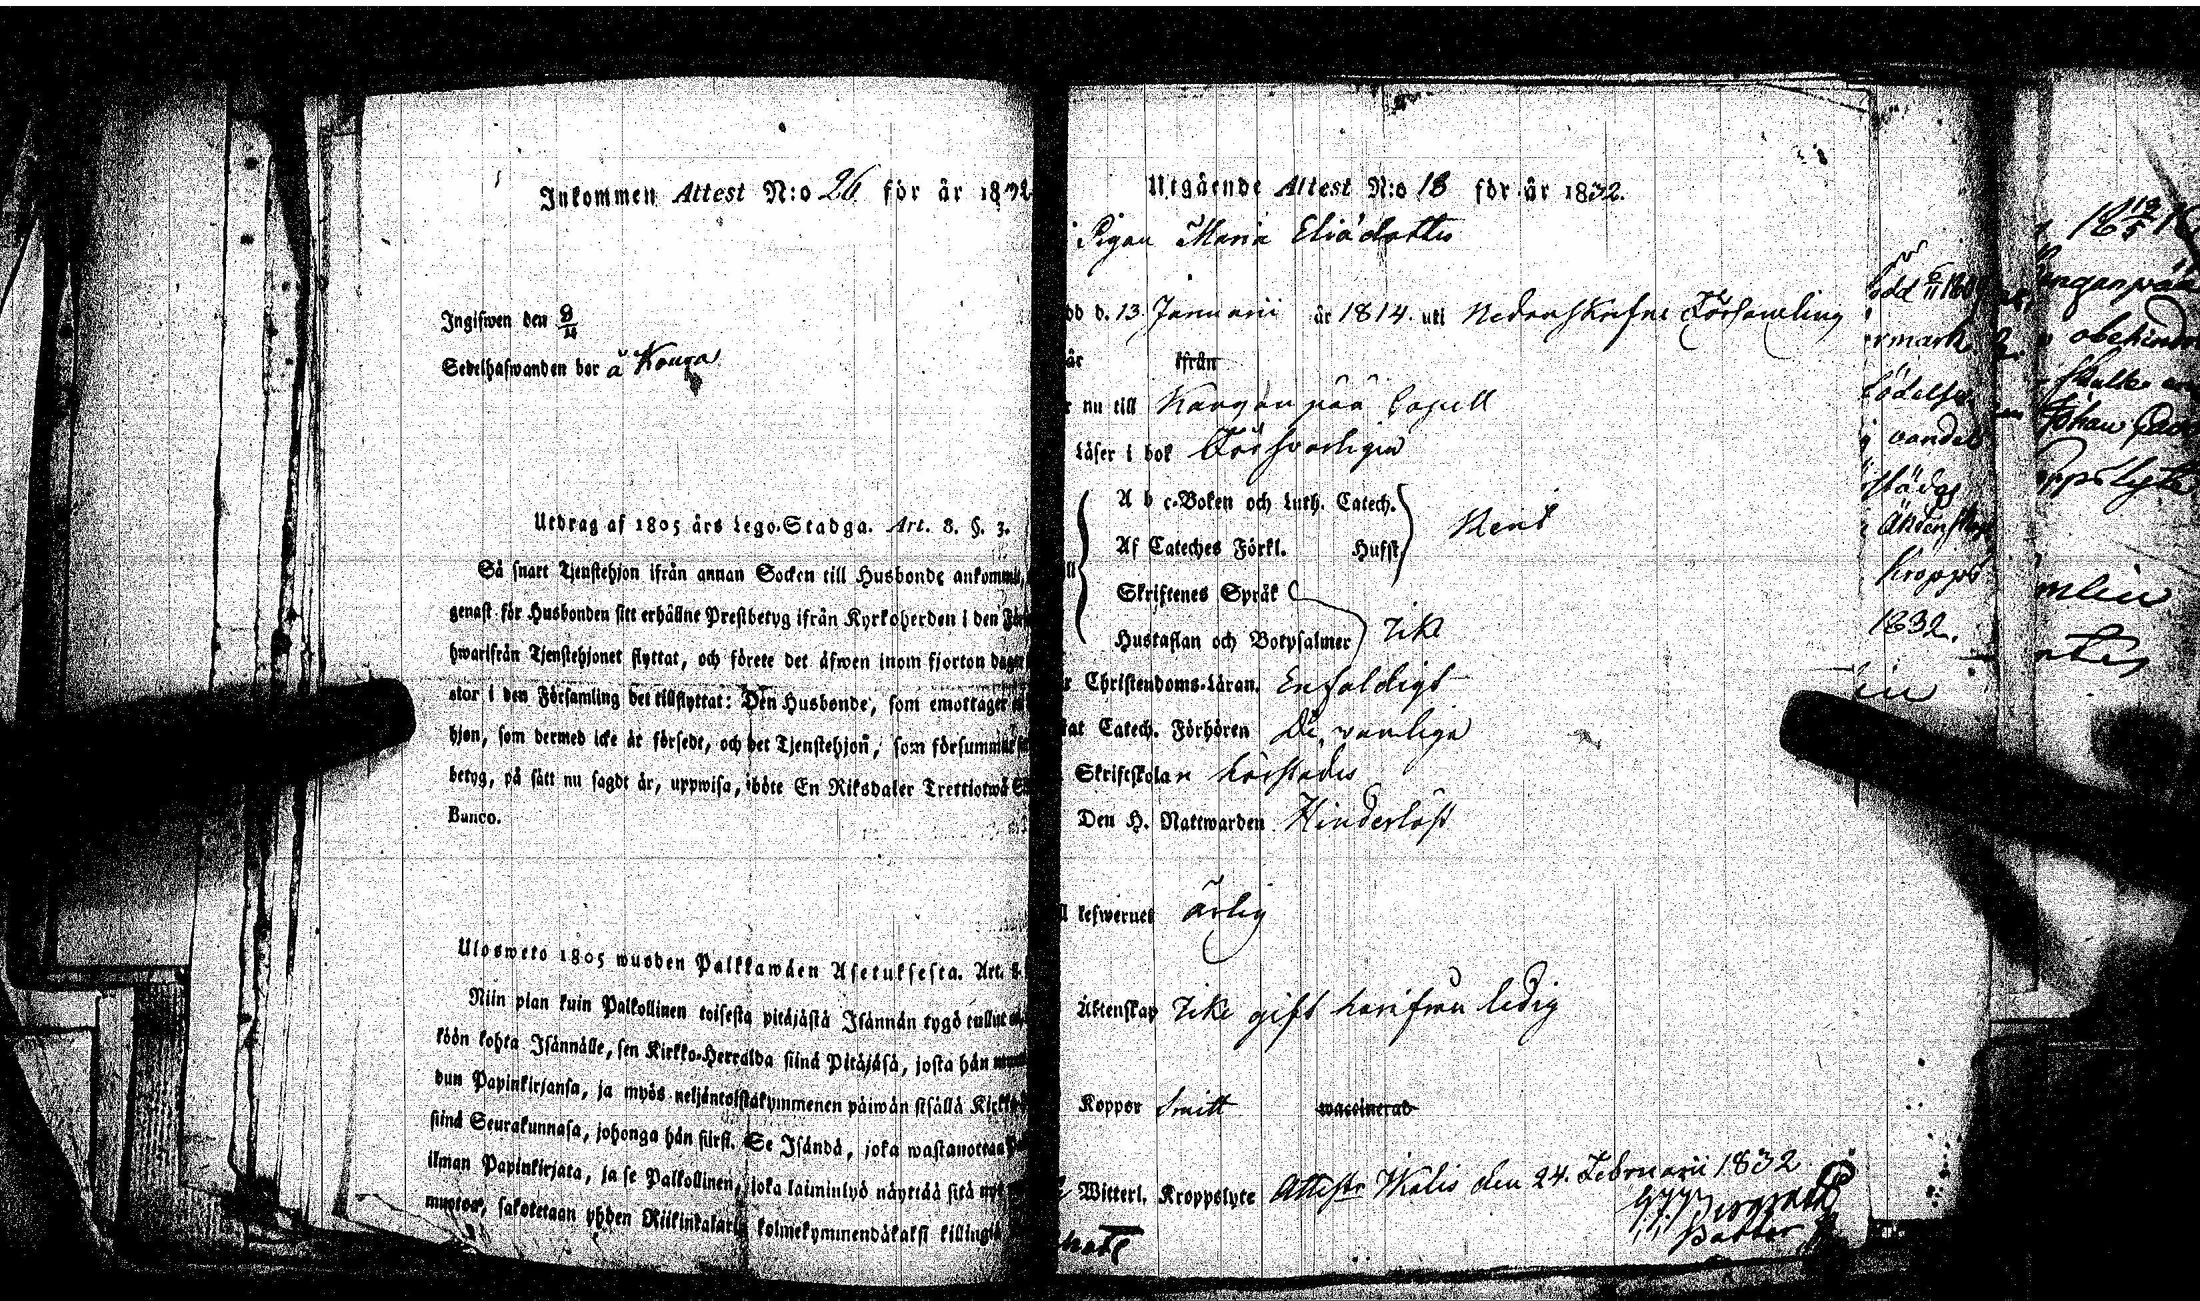 Inkommen Attest N:o 26 för år 1832
Ingifwen den 8/11
Sedelhafwanden bor å Koura
Utdrag af 1805 års Lego-Stadga. Art. 8. §. 3.
Så snart Tjenstehjon ifrån annan Socken till Husbonde ankommit,
genast för Husbonden sitt erhållne Prestbetyg ifrån Kyrkoherden i den
hwarifrån Tjenstehjonet flyttat, och förete det äfwen inom fjorton dagar
stor i den Församling det tillflyttat: Den Husbonde, som emottager
hjon, som dermed icke är försedt, och det Tjenstehjon, som försummar
betyg, på sätt nu sagdt är, uppwisa, böte En Riksdaler Trettiotwå
Banco.
Ulosweto 1805 wuoden Palkkawäen Asetuksesta. Art. 8.
Niin pian kuin Palkollinen toisesta pitäjästä Isännän tygö tullut
köön kohta Isännälle, sen Kirkko-Herralda siinä Pitäjäsä, josta hän
dun Papinkirjansa, ja myös neljäntoistakymmenen päiwän sisällä
siinä Seurakunnasa, johonga hän siirsi. Se Isändä, joka wastanottaa
ilman Papinkirjata, ja se Palkollinen, joka laiminlyö näyttää sitä
muotoa, sakotetaan yhden Riikintalarin kolmekymmendäkaksi killingiä
Utgående Attest N:o 18 för år 1832.
Pigan Maria Eliædotter
dd d. 13 Januarii år 1814. uti Nedanskrefne Församling
är ifrån
r nu till Kanganpää Capell
Läser i bok Försvarligen
A b c-Boken och Luth. Catech.
Rent
Af Cateches Förkl. Husft.
Skriftenes Språk
Hustaflan och Botpsalmer icke
r Christendoms-Läran. Enfaldigt
tat Catech. Förhören De vanliga
Skriftskolan härstädes
Den H. Nattwarden Hinderlöst
ll Lefwernet ärlig
Äktenskap icke gift härifrån ledig
Koppor Smitt waccinerad
Witterl. Kroppslyte Attest. Ikalis den 24. Februarii 1832
Pastor
ödd
rmark.
vandel
Kropps
1832.
obehindr
Johan